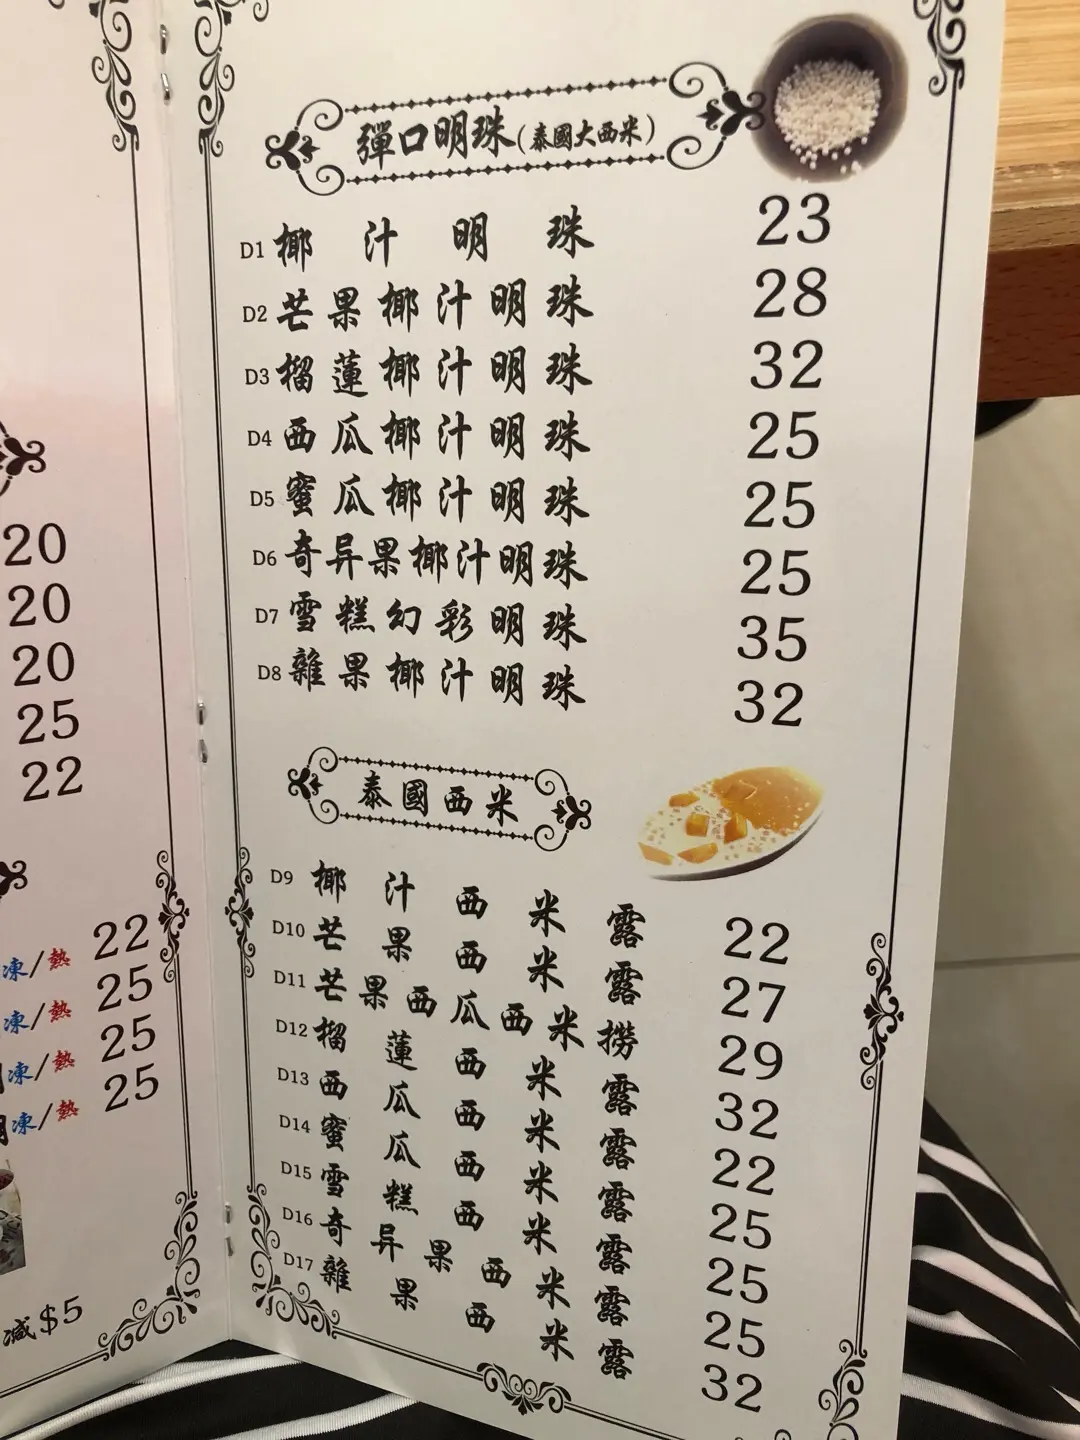 20
20
20
25
22
凍/熱 22
凍/熱 25
凍/熱 25
凍/熱 25
減$5
彈口明珠(泰國大西米)
D1 椰汁明珠 23
D2 芒果椰汁明珠 28
D3 榴蓮椰汁明珠 32
D4 西瓜椰汁明珠 25
D5 蜜瓜椰汁明珠 25
D6 奇异果椰汁明珠 25
D7 雪糕幻彩明珠 35
D8 雜果椰汁明珠 32
泰國西米
D9 椰汁西米露 22
D10 芒果西米露 27
D11 芒果西瓜西米撈 29
D12 榴蓮西米露 32
D13 西瓜西米露 22
D14 蜜瓜西米露 25
D15 雪糕西米露 25
D16 奇异果西米露 25
D17 雜果西米露 32